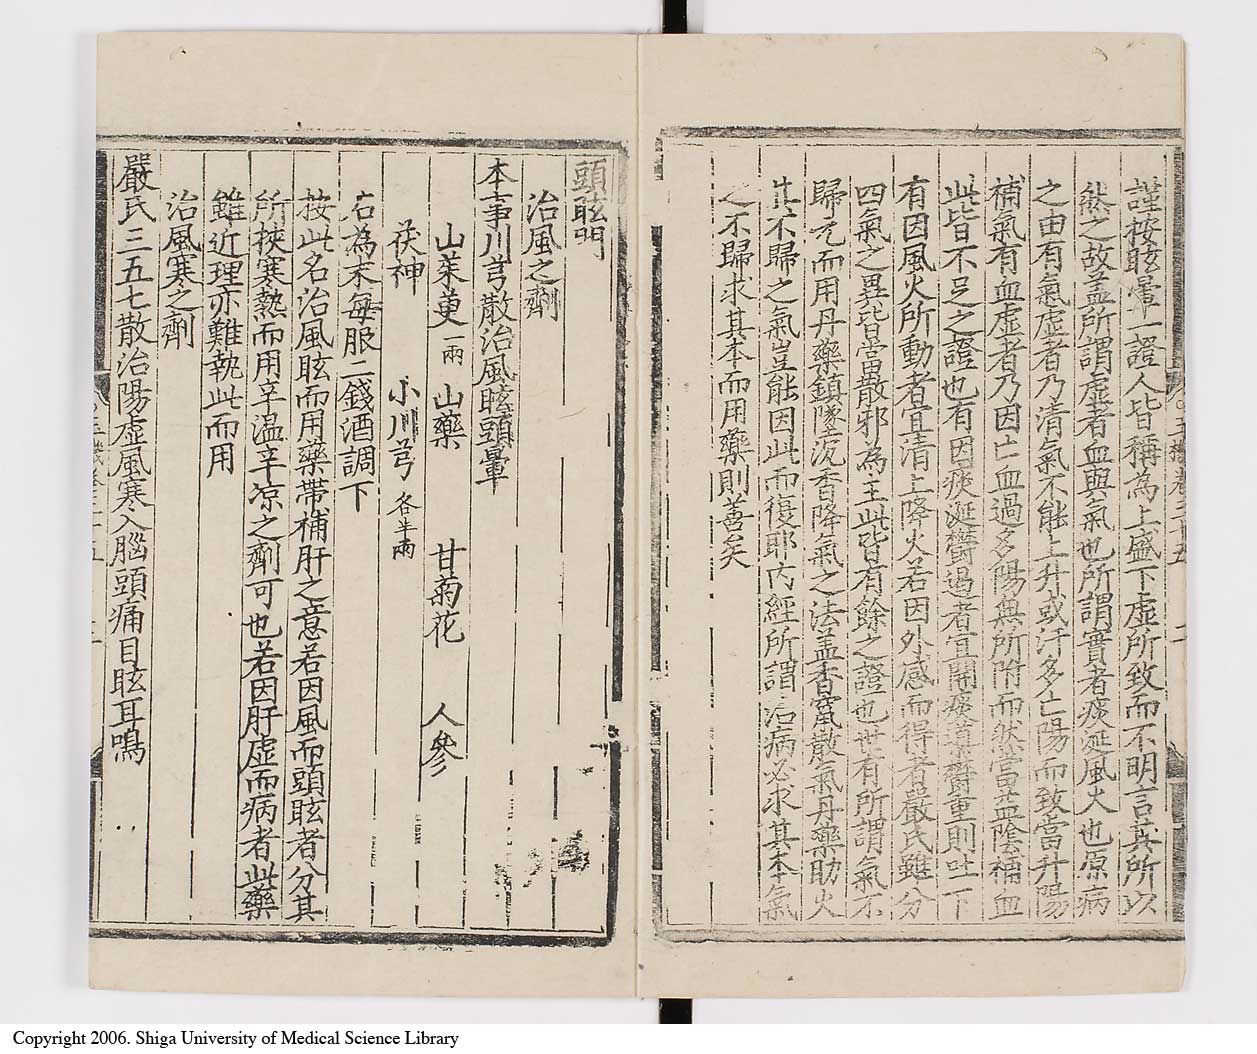 謹按眩暈一證人皆稱為上盛下虛所致而不明言其所以
然之故盖所謂虛者血與氣也所謂實者痰涎風火也原病
之由有氣虛者乃清氣不能上升或汗多亡陽而致當升陽
補氣有血虛者乃因亡血過多陽無所附而然當益陰補血
此皆不足之證也有因痰涎鬱遏者宜開痰導鬱重則吐下
有因風火所動者宜清上降火若因外感而得者嚴氏雖分
四氣之異皆當散邪為主此皆有餘之證也世有所謂氣不
歸元而用丹藥鎮墜沉香降氣之法盖香竄散氣丹藥助火
其不歸之氣豈能因此而復耶內經所謂治病必求其本氣
之不歸求其本而用藥則善矣
頭眩門
治風之劑
本事川芎散治風眩頭暈
山茱萸一兩 山藥 甘菊花 人參
茯神 小川芎各半兩
右為末每服二錢酒調下
按此名治風眩而用藥帶補肝之意若因風而頭眩者分其
所挾寒熱而用辛温辛凉之劑可也若因肝虛而病者此藥
雖近理亦難執此而用
治風寒之劑
嚴氏三五七散治陽虛風寒入腦頭痛目眩耳鳴
Copyright 2006. Shiga University of Medical Science Library